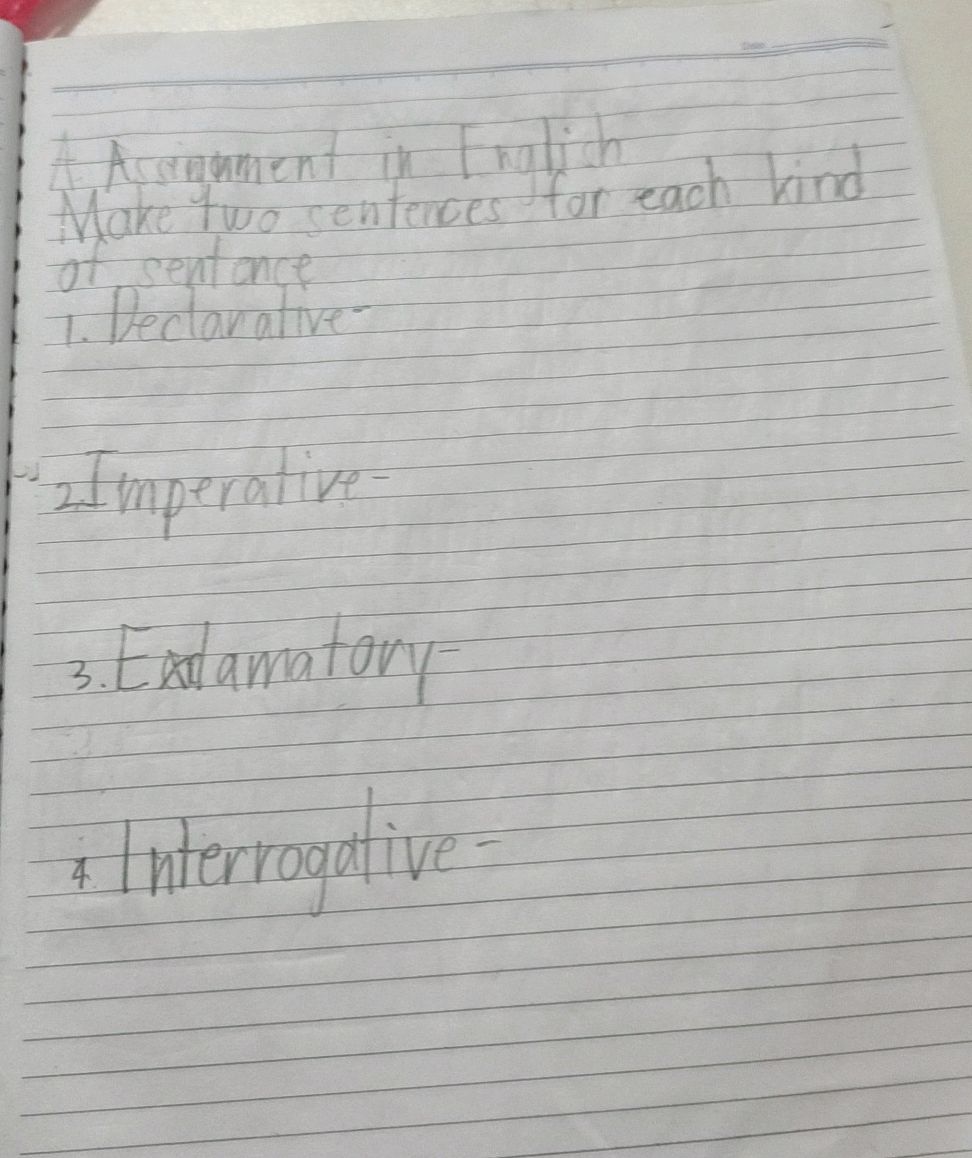 A Assignment in English
Make two sentences for each kind
of sentence
1. Declarative-
2. Imperative-
3. Exclamatory-
4. Interrogative-